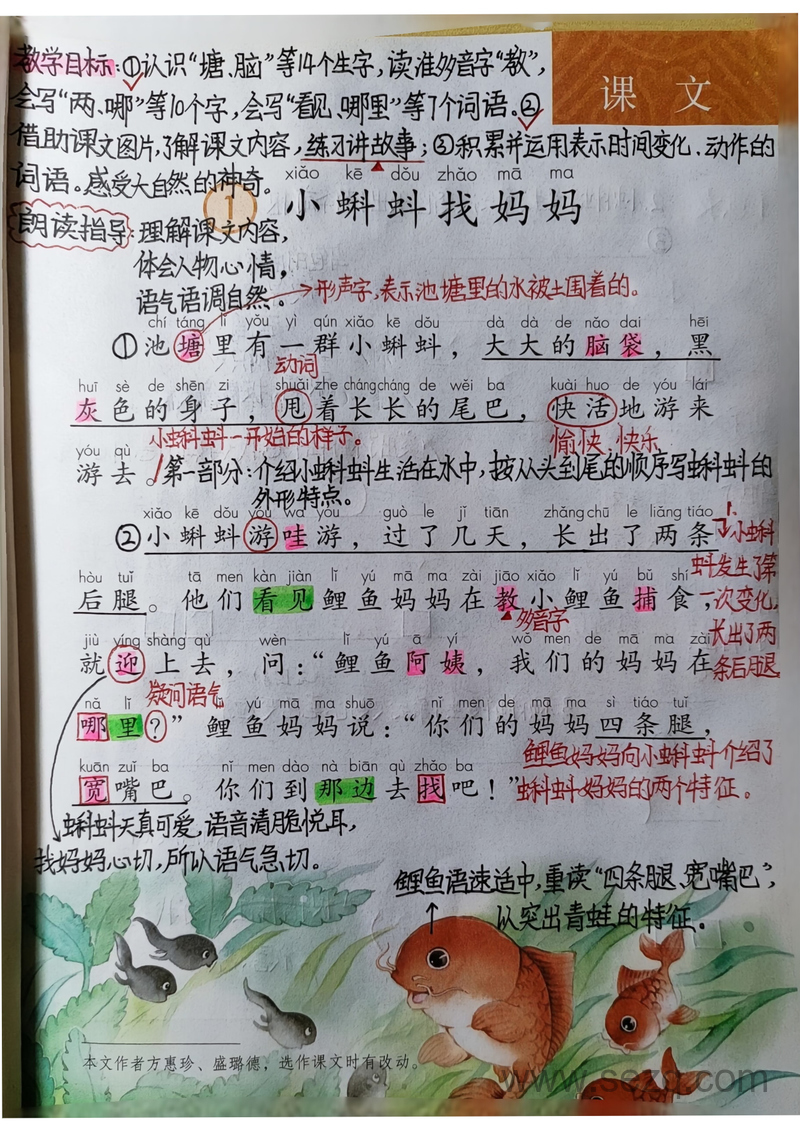 教学目标:①认识“塘、脑”等14个生字,读准多音字“教”,
会写“两、哪”等10个字,会写“看见、哪里”等7个词语。②
借助课文图片,了解课文内容,练习讲故事;③积累并运用表示时间变化、动作的
词语。感受大自然的神奇。
课 文
xiǎo kē dǒu zhǎo mā ma
1 小蝌蚪找妈妈
朗读指导:理解课文内容,
体会人物心情,
语气语调自然。
形声字,表示池塘里的水被土围着的。
chí táng lǐ yǒu yì qún xiǎo kē dǒu dà dà de nǎo dai hēi
①池塘里有一群小蝌蚪,大大的脑袋,黑
动词
huī sè de shēn zi shuǎi zhe cháng cháng de wěi ba kuài huo de yóu lái
灰色的身子,甩着长长的尾巴,快活地游来
小蝌蚪一开始的样子。
愉快、快乐
yóu qù
游去。第一部分:介绍小蝌蚪生活在水中,按从头到尾的顺序写蝌蚪的
外形特点。
xiǎo kē dǒu yóu wa yóu guò le jǐ tiān zhǎng chū le liǎng tiáo
②小蝌蚪游哇游,过了几天,长出了两条
小蝌蚪发生了第一次变化,长出了两条后腿
hòu tuǐ tā men kàn jiàn lǐ yú mā ma zài jiāo xiǎo lǐ yú bǔ shí
后腿。他们看见鲤鱼妈妈在教小鲤鱼捕食,
多音字
jiù yíng shàng qù wèn lǐ yú ā yí wǒ men de mā ma zài
就迎上去,问:“鲤鱼阿姨,我们的妈妈在
疑问语气
nǎ lǐ lǐ yú mā ma shuō nǐ men de mā ma sì tiáo tuǐ
哪里?”鲤鱼妈妈说:“你们的妈妈四条腿,
鲤鱼妈妈向小蝌蚪介绍了
kuān zuǐ ba nǐ men dào nà biān qù zhǎo ba
宽嘴巴。你们到那边去找吧!”
蝌蚪妈妈的两个特征。
蝌蚪天真可爱,语音清脆悦耳,
找妈妈心切,所以语气急切。
鲤鱼语速适中,重读“四条腿、宽嘴巴”,
以突出青蛙的特征。
本文作者方惠珍、盛璐德,选作课文时有改动。